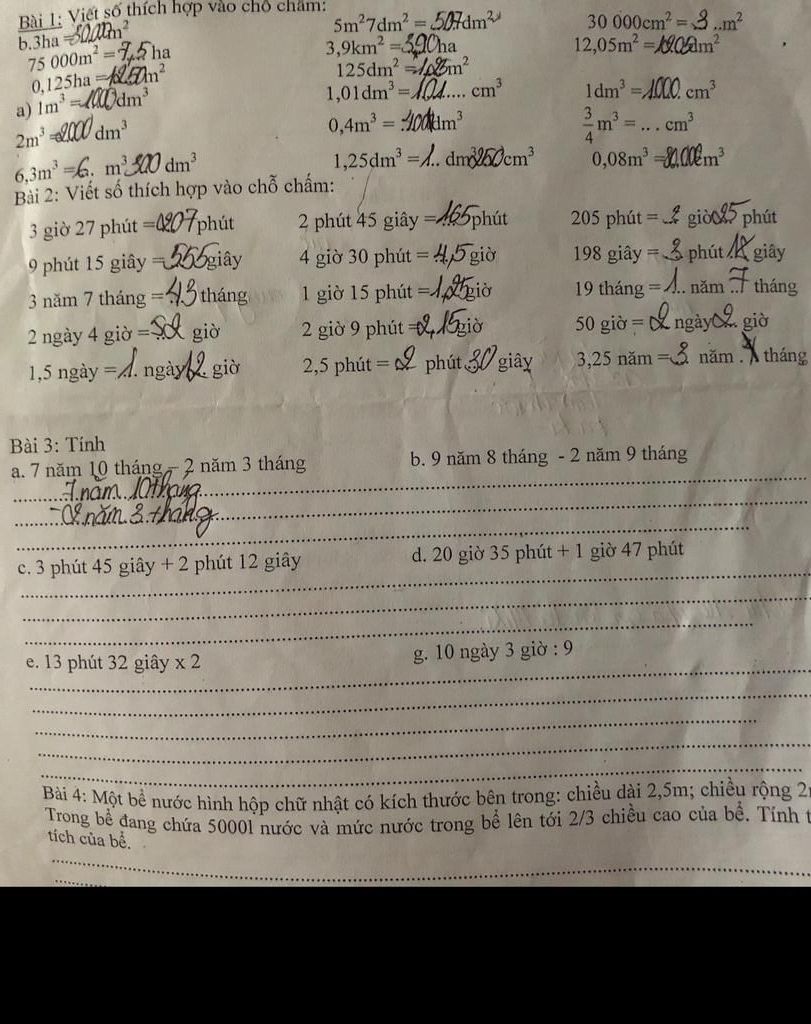 Bài 1: Viết số thích hợp vào chỗ chấm:
b.3ha = 30000m² 5m²7dm² = 507dm² 30 000cm² = 3 ..m²
75 000m² = 7,5 ha 3,9km² = 390ha 12,05m² = 1205dm²
0,125ha = 1250m² 125dm² = 1,25m²
a) 1m³ = 1000dm³ 1,01dm³ = 101.... cm³ 1dm³ = 1000. cm³
2m³ = 2000 dm³ 0,4m³ = 400dm³ 3/4 m³ = ... cm³
6,3m³ = 6. m³ 300 dm³ 1,25dm³ = 1.. dm³250cm³ 0,08m³ = cm³
Bài 2: Viết số thích hợp vào chỗ chấm:
3 giờ 27 phút = 207phút 2 phút 45 giây = 165phút 205 phút = 3 giờ 25 phút
9 phút 15 giây = 555giây 4 giờ 30 phút = 4,5 giờ 198 giây = 3 phút 18 giây
3 năm 7 tháng = 43 tháng 1 giờ 15 phút = 1,25giờ 19 tháng = 1.. năm 7 tháng
2 ngày 4 giờ = 52 giờ 2 giờ 9 phút = 2,15giờ 50 giờ = 2 ngày 2. giờ
1,5 ngày = 1. ngày 12 giờ 2,5 phút = 2 phút 30 giây 3,25 năm = 3 năm . tháng
Bài 3: Tính
a. 7 năm 10 tháng - 2 năm 3 tháng b. 9 năm 8 tháng - 2 năm 9 tháng
7 năm 10 tháng
- 2 năm 3 tháng
c. 3 phút 45 giây + 2 phút 12 giây d. 20 giờ 35 phút + 1 giờ 47 phút
e. 13 phút 32 giây x 2 g. 10 ngày 3 giờ : 9
Bài 4: Một bể nước hình hộp chữ nhật có kích thước bên trong: chiều dài 2,5m; chiều rộng 2
Trong bể đang chứa 5000l nước và mức nước trong bể lên tới 2/3 chiều cao của bể. Tính
tích của bể.